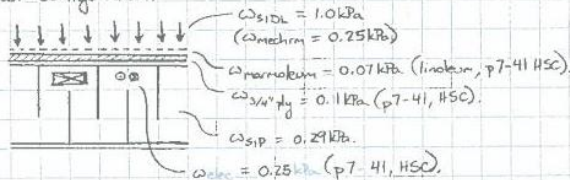 ω_SIDL = 1.0 kPa
(ω_mechrm = 0.25 kPa)
ω_marmoleum = 0.07 kPa (linoleum, p7-41 HSC).
ω_3/4" ply = 0.11 kPa (p7-41, HSC).
ω_SIP = 0.29 kPa.
ω_elec = 0.25 kPa (p7-41, HSC).